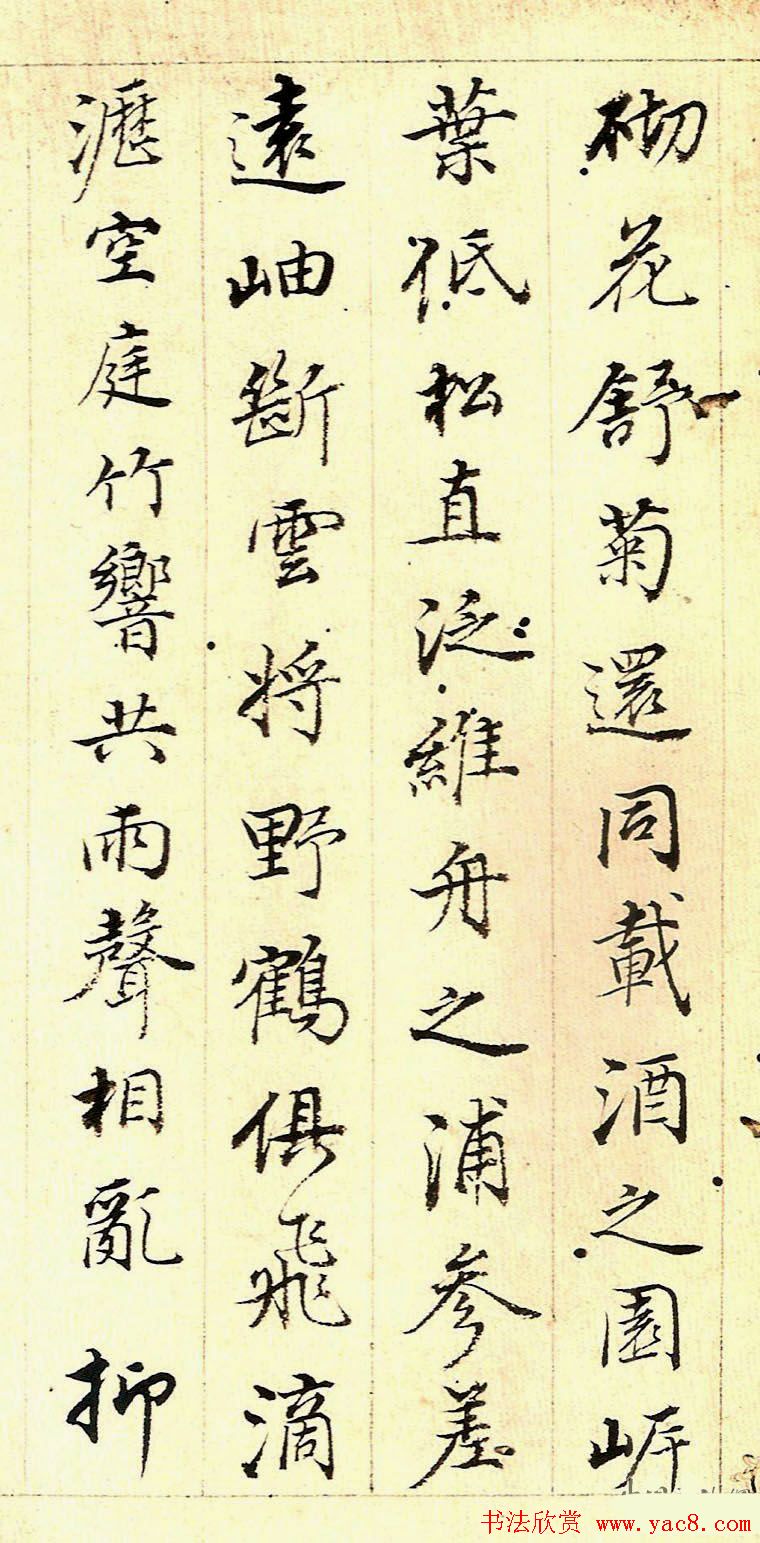 砌花舒菊還同載酒之園岸
葉低松直泛維舟之浦參差
遠岫斷雲將野鶴俱飛滴
瀝空庭竹響共雨聲相亂抑
书法欣赏 www.yac8.com